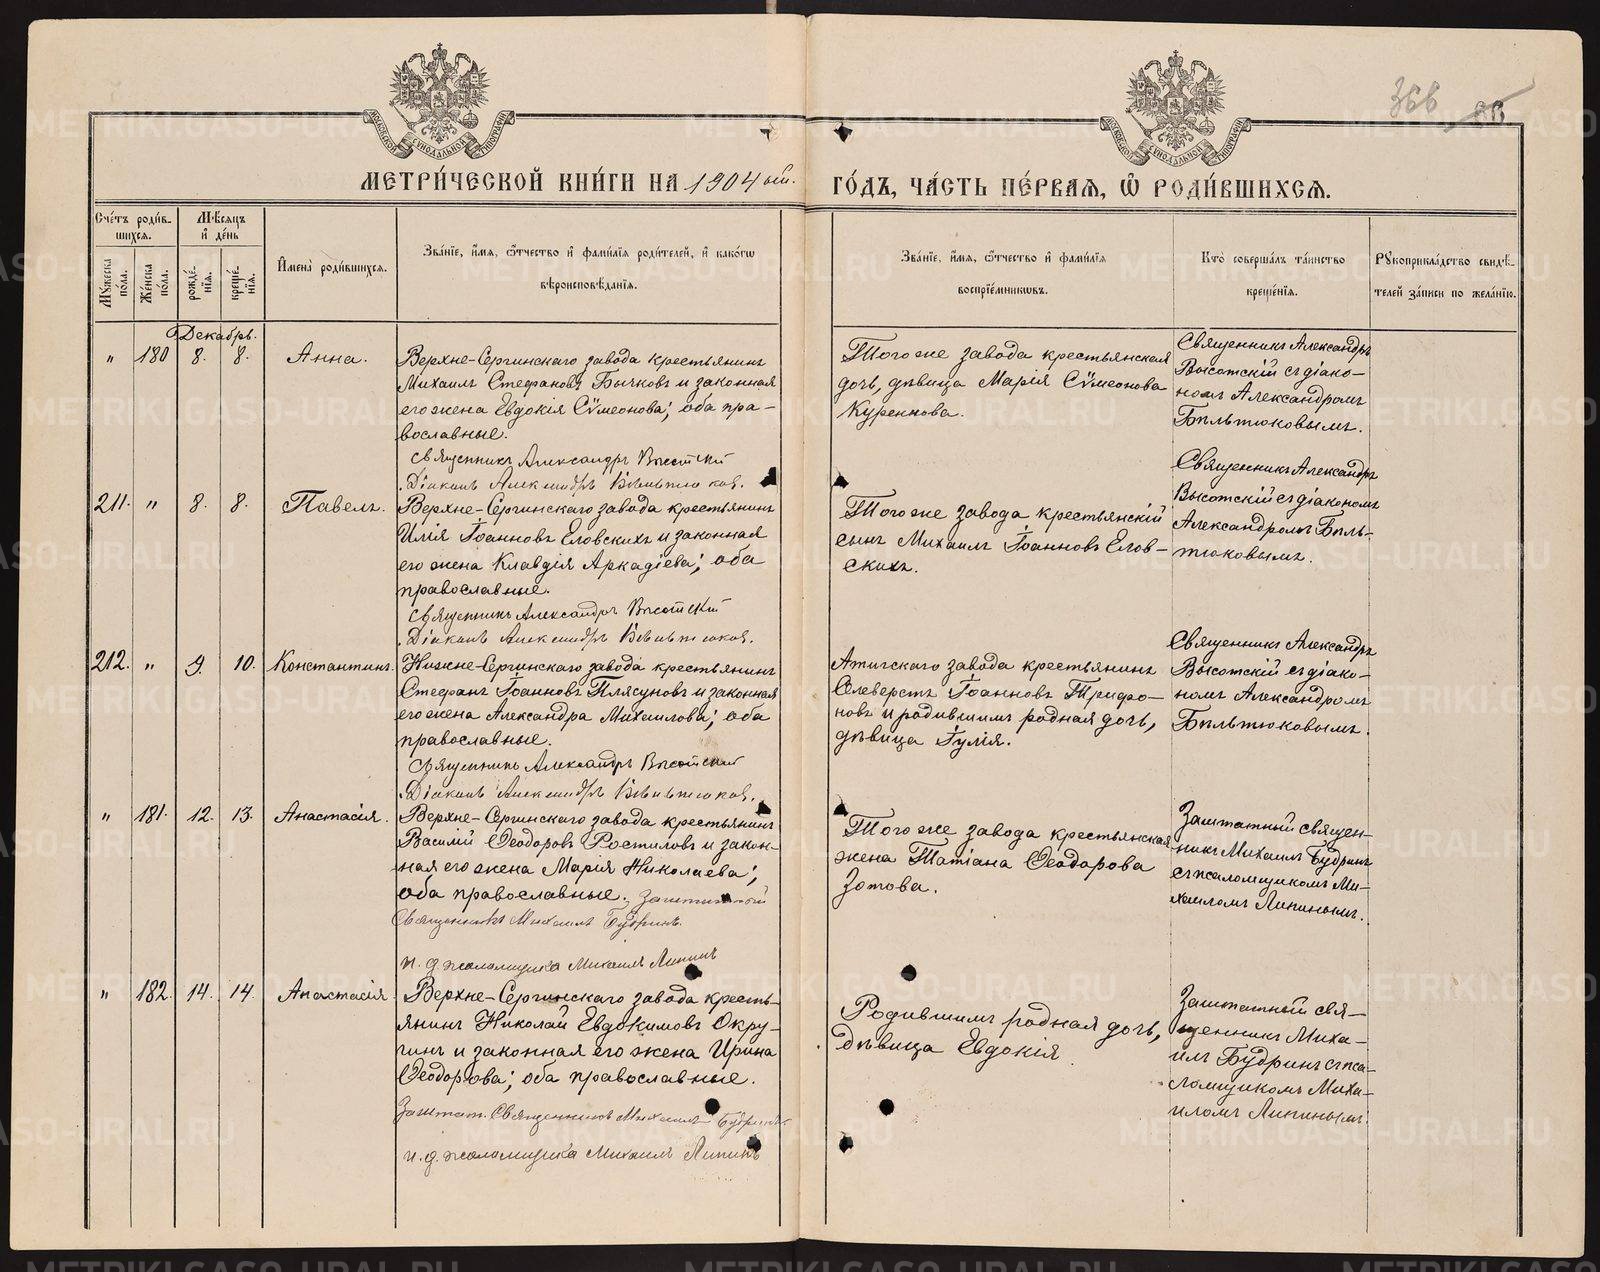 366
МОСКОВСКОЙ СУНОДАЛЬНОЙ ТИПОГРАФІИ
МОСКОВСКОЙ СУНОДАЛЬНОЙ ТИПОГРАФІИ
МЕТРИ́ЧЕСКОЙ КНИ́ГИ НА 1904 ый.
ГО́ДЪ, ЧА́СТЬ ПЕ́РВАѦ, Ѿ РОДИ́ВШИХСѦ.
Сче́тъ роди́в-
шихсѧ.
Мꙋ́жеска по́ла.
Же́нска по́ла.
Мѣ́сѧцъ
и҆ де́нь
рожде́-
нїѧ.
креще́-
нїѧ.
И҆мена̀ роди́вшихсѧ.
Зва́нїе, и҆́мѧ, ѻ҆́тчество и҆ фами́лїѧ роди́телей, и҆ како́гѡ
вѣроисповѣ́данїѧ.
Зва́нїе, и҆́мѧ, ѻ҆́тчество и҆ фами́лїѧ
воспрїе́мникѡвъ.
Кто̀ соверша́лъ та́инство
креще́нїѧ.
Рꙋкоприкла́дство свидѣ́-
телей за́писи по жела́нїю.
Декабрь.
" 180 8. 8. Анна.
Верхне-Сергинскаго завода крестьянинъ
Михаилъ Стефановъ Бычковъ и законная
его жена Евдокія Сѵмеонова; оба пра-
вославные.
Священникъ Александръ Высотскій
Діаконъ Александръ Бѣльтюковъ.
Того же завода крестьянская
дочь, дѣвица Марія Сѵмеонова
Куренкова.
Священникъ Александръ
Высотскій съ діако-
номъ Александромъ
Бѣльтюковымъ.
211. " 8. 8. Павелъ.
Верхне-Сергинскаго завода крестьянинъ
Илія Іоанновъ Еговскихъ и законная
его жена Клавдія Аркадіева; оба
православные.
Священникъ Александръ Высотскій
Діаконъ Александръ Бѣльтюковъ.
Того же завода крестьянскій
сынъ Михаилъ Іоанновъ Егов-
скихъ.
Священникъ Александръ
Высотскій съ діакономъ
Александромъ Бѣль-
тюковымъ.
212. " 9. 10. Константинъ.
Нижне-Сергинскаго завода крестьянинъ
Стефанъ Іоанновъ Плясуновъ и законная
его жена Александра Михаилова; оба
православные.
Священникъ Александръ Высотскій
Діаконъ Александръ Бѣльтюковъ.
Атигскаго завода крестьянинъ
Селеверстъ Іоанновъ Трифо-
новъ и родившимъ родная дочь,
дѣвица Іулія.
Священникъ Александръ
Высотскій съ діако-
номъ Александромъ
Бѣльтюковымъ.
" 181. 12. 13. Анастасія.
Верхне-Сергинскаго завода крестьянинъ
Василій Ѳеодоровъ Ростиловъ и закон-
ная его жена Марія Николаева;
оба православные. Заштатный
Священникъ Михаилъ Будринъ.
и. д. псаломщика Михаилъ Липинъ
Того же завода крестьянская
жена Татіана Ѳеодорова
Зотова.
Заштатный священ-
никъ Михаилъ Будринъ
съ псаломщикомъ Ми-
хаиломъ Липинымъ.
" 182. 14. 14. Анастасія
Верхне-Сергинскаго завода кресть-
янинъ Николай Евдокимовъ Окру-
гинъ и законная его жена Ирина
Ѳеодорова; оба православные.
Заштат. Священникъ Михаилъ Будринъ
и. д. псаломщика Михаилъ Липинъ
Родившимъ родная дочь,
дѣвица Евдокія
Заштатный свя-
щенникъ Миха-
илъ Будринъ съ пса-
ломщикомъ Миха-
иломъ Липинымъ.
METRIKI.GASO-URAL.RU